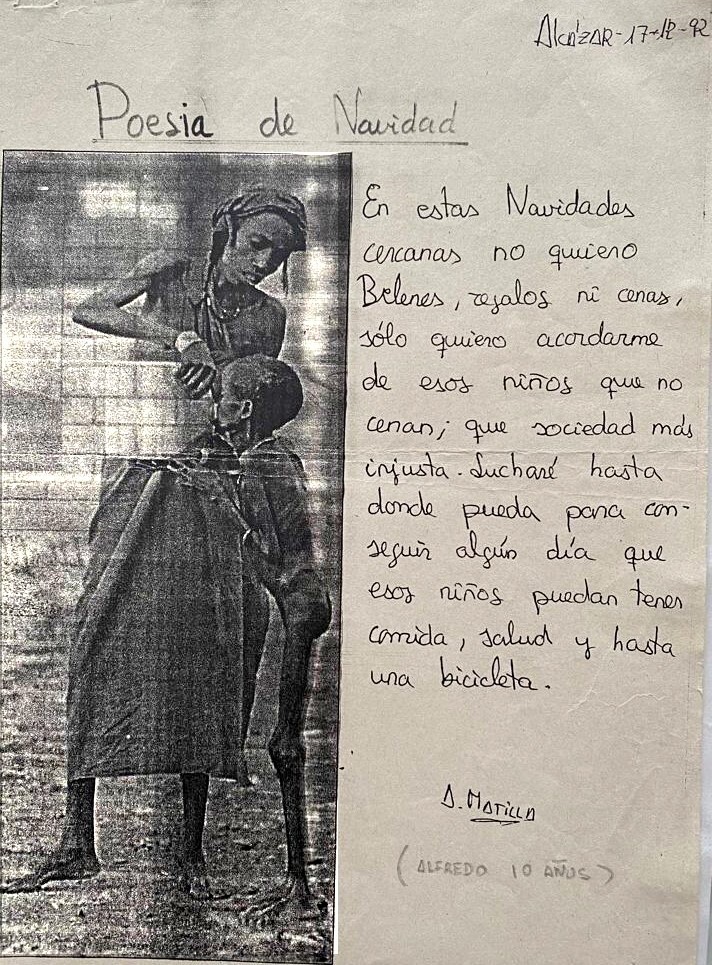 Alcázar-17-12-92
Poesia de Navidad
En estas Navidades
cercanas no quiero
Belenes, regalos ni cenas,
sólo quiero acordarme
de esos niños que no
cenan; que sociedad más
injusta. Lucharé hasta
donde pueda para con-
seguir algún día que
esos niños puedan tener
comida, salud y hasta
una bicicleta.
A. MATILLA
(ALFREDO 10 AÑOS)